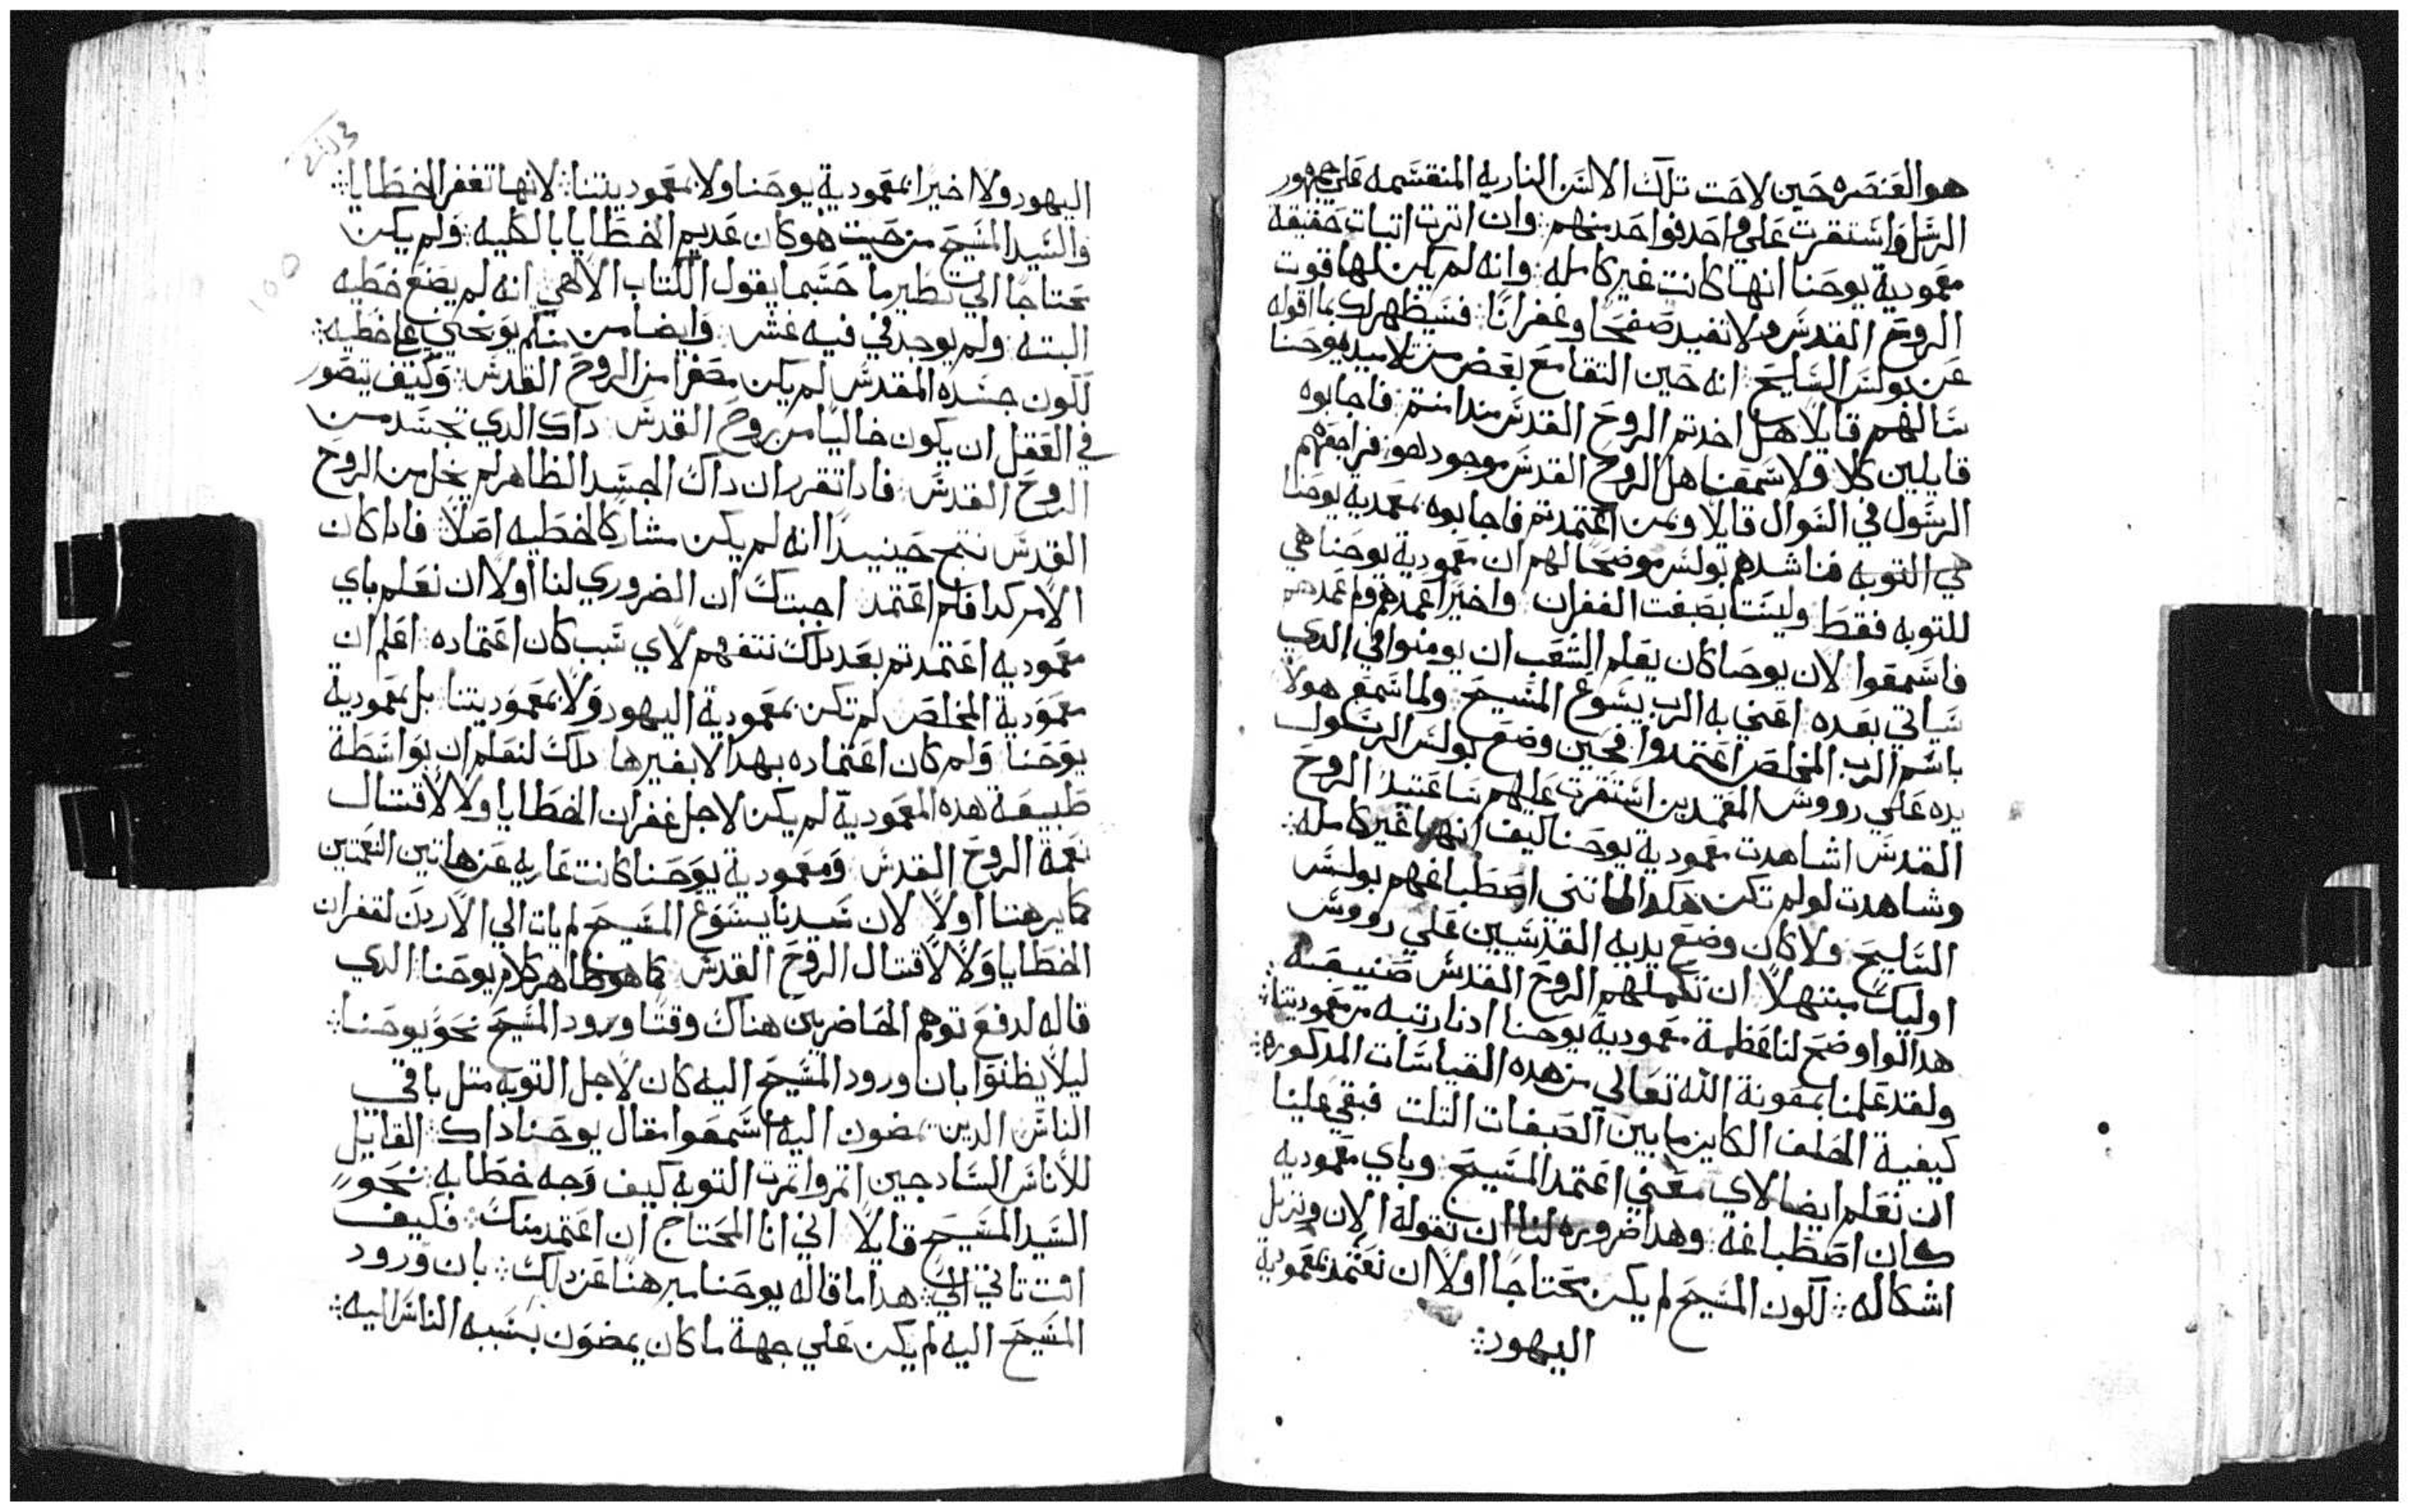 هو العنصره حين لاحت تلك الالسن الناريه المنقسمه علي جمهور
الرسل واستقرت علي واحد فواحد منهم وان اترت اتبات حقيقة
معمودية يوحنا انها كانت غير كامله وانه لم يكن لها قوت
الروح القدس ولا تفيد صفحا وغفرانا فسيظهر لك بما اقوله
عن بولس السليح انه حين التقا مع بعض من تلاميد يوحنا
سالهم قايلا هل اخدتم الروح القدس مند امنتم فاجابوه
قايلين كلا ولا سمعنا هل الروح القدس موجود هو فراجعهم
الرسول في السوال قايلا وبمن اعتمدتم فاجابوه بمعمديه يوحنا
هي التوبه فناشدهم بولس موضحا لهم ان معمودية يوحنا هي
للتوبه فقط وليستا بصبغت الغفران واخيرا عمدهم ولم عمدهم
فاسمعوا لان يوحنا كان يعلم الشعب ان يومنوا في الدي
سياتي بعده اعني به الرب يسوع المسيح ولما سمع هولا
باسم الرب المخلص اعتمدوا فحين وضع بولس الرسول
يده علي رووس المعتمدين استقرت عليهم ساعتيد الروح
القدس اشاهدت معمودية يوحنا كيف انها غير كامله
وشاهدت لو لم تكن هكدا لما تني اصطباغهم بولس
السليح ولا كان وضع يديه القدسيين علي رووس
اوليك مبتهلا ان تكملهم الروح القدس صنيعه
هدا لوا وضح لنا عظمة معمودية يوحنا ادنا رتبه من معموديتنا
ولقد علمنا بمعونة الله تعالي من هده القياسات المدكوره
كيفية الخلف الكاين ما بين الصبغات التلت فبقي علينا
ان نعلم ايضا لاي معني اعتمد المسيح وباي معموديه
كان اصطباغه وهدا ضروره لنا ان نقوله الان ونزيل
اشكاله لكون المسيح لم يكن محتاجا اولا ان نعتمد بمعمودية
اليهود
اليهود ولا اخيرا بمعمودية يوحنا ولا بمعموديتنا لانها تغفر الخطايا
والسيد المسيح من حيت هو كان عديم الخطايا بالكليه ولم يكن
محتاجا الي تطير ما حسبما يقول الكتاب الالاهي انه لم يصنع خطيه
البته ولم يوجد في فيه غش وايضا من منكم يوبخني علي خطيه
لكون جسده المقدس لم يكن مصفرا من الروح القدس وكيف يتصور
في العقل ان يكون خاليا من روح القدس داك الدي تجسد من
الروح القدس فادا تقرر ان داك الجسد الظاهر لم يخل من الروح
القدس نتج حينيدا انه لم يكن مشاركا لخطيه اصلا فادا كان
الامر كدا فلم اعتمد اجبتك ان الضروري لنا اولا ان نعلم باي
معموديه اعتمد تم بعد دلك نتفهم لاي سبب كان اعتماده اعلم ان
معمودية المخلص لم تكن بمعمودية اليهود ولا بمعموديتنا بل بمعمودية
يوحنا ولم كان اعتماده بهدا لا بغيرها دلك لنعلم ان بواسطة
طبيعة هده المعمودية لم يكن لاجل غفران الخطايا ولا لاقتبال
نعمة الروح القدس ومعمودية يوحنا كانت عاريه عن هاتين النعمتين
كما برهنا اولا لان سيدنا يسوع المسيح لم يات الي الاردن لغفران
الخطايا ولا لاقتبال الروح القدس كما هو ظاهر كلام يوحنا الدي
قاله لدفع توهم الحاضرين هناك وقتا ورود المسيح نحو يوحنا
ليلا يظنوا بان ورود المسيح اليه كان لاجل التوبه متل باقي
الناس الدين يمضون اليه اسمعوا مقال يوحنا داك القايل
للاناس السادجين اتمروا تمرت التوبه كيف وجه خطابه نحو
السيد المسيح قايلا اني انا المحتاج ان اعتمد منك فكيف
انت تاتي الي هدا ما قاله يوحنا مبرهنا عن دلك بان ورود
المسيح اليه لم يكن علي جهة ما كان يمضون بسببه الناس اليه